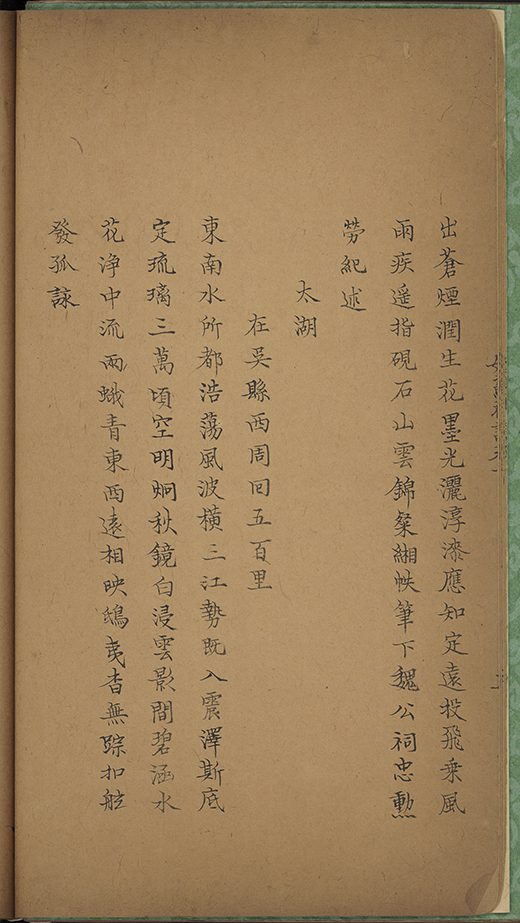 出蒼煙潤生花墨光灑淳漆應知定遠投飛乘風
雨疾遥指硯石山雲錦粲緗帙筆下魏公祠忠勳
勞紀述
太湖
在吳縣西周回五百里
東南水所都浩蕩風波橫三江勢既入震澤斯底
定琉璃三萬頃空明炯秋鏡白浸雲影間碧涵水
花浄中流兩蛾青東西遠相映鴟夷杳無踪扣舷
發孤詠